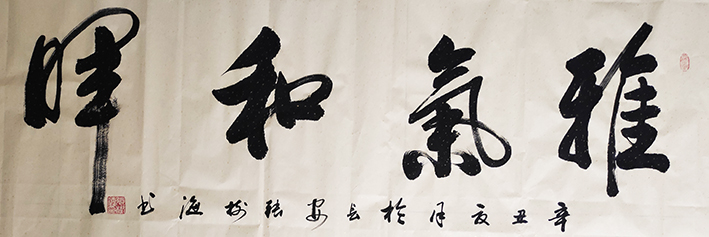 雅氣和暉
辛丑夏月於长安張樹海书